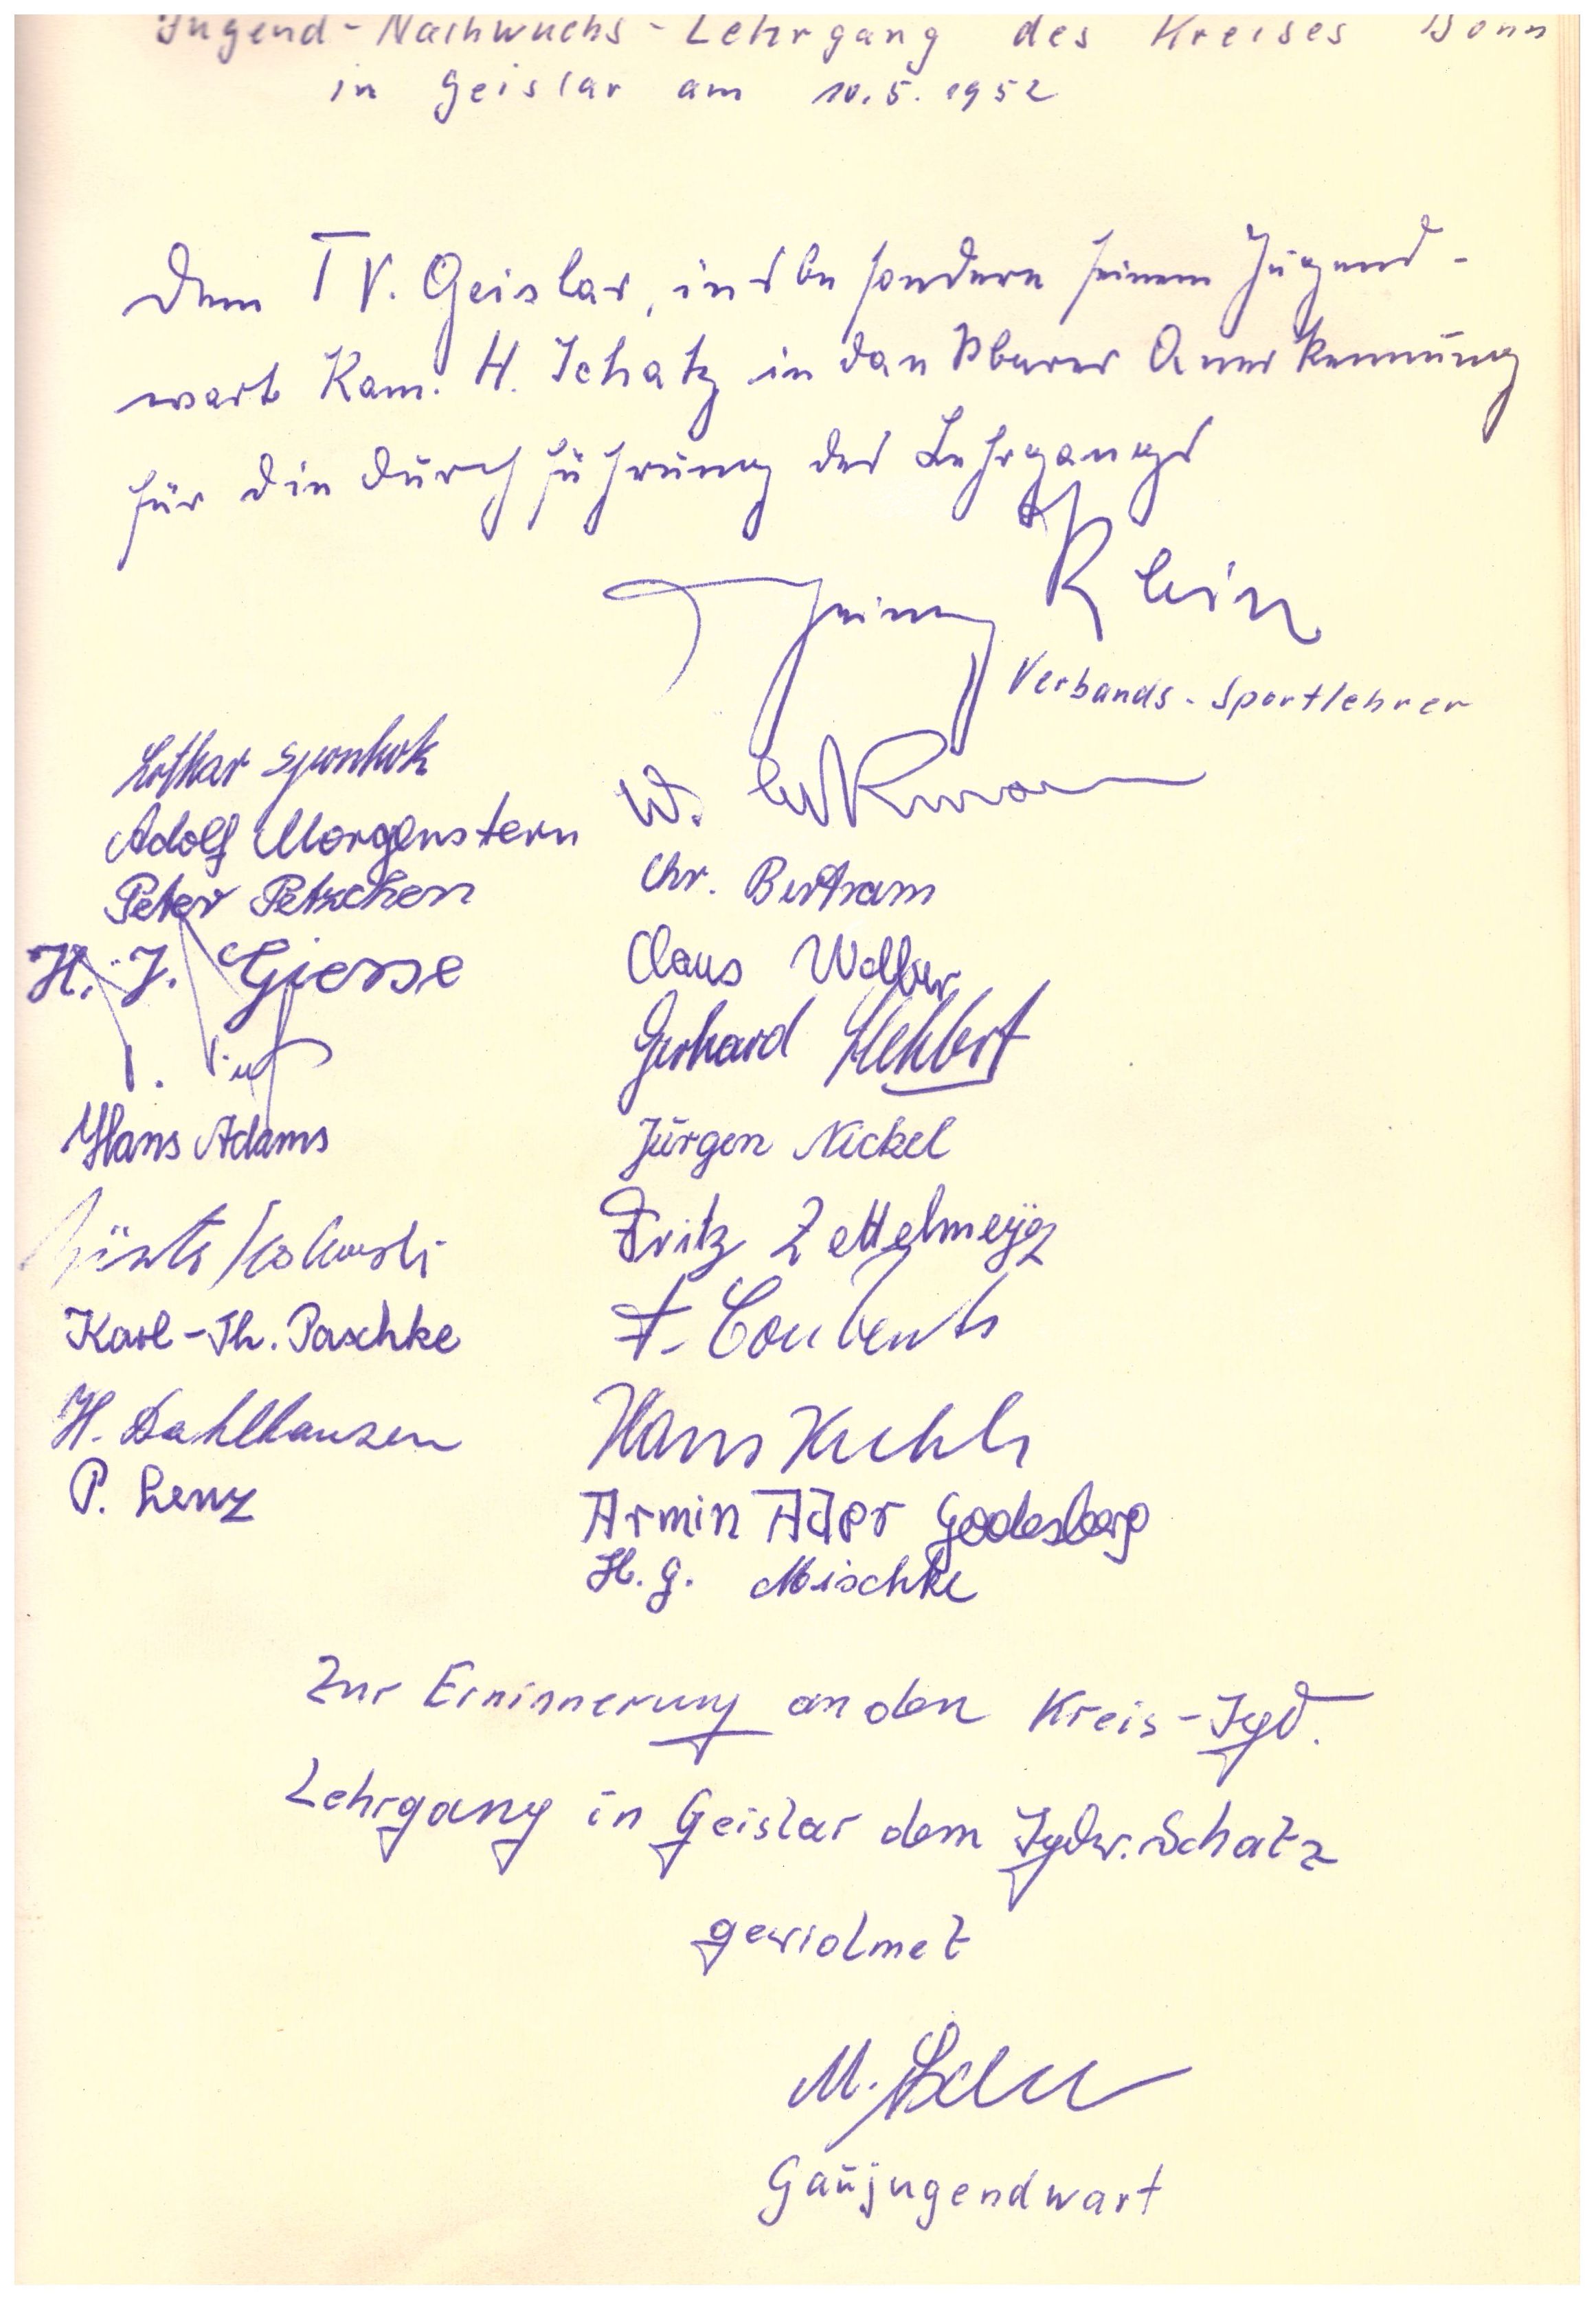 Jugend-Nachwuchs-Lehrgang des Kreises Bonn
in Geislar am 10.5.1952
Dem TV. Geislar, insbesondere seinem Jugend-
wart Kam. H. Schatz in dankbarer Anerkennung
für die Durchführung des Lehrgangs
Heinz Klein
Verbands-Sportlehrer
Lothar
Adolf Morgenstern
Peter Petzchen
H. J. Gierse
Hans Adams
Karl-Th. Paschke
H. Dahlhausen
P. Lenz
W.
Chr. Bertram
Claus Wolber
Gerhard
Jürgen Nickel
Fritz Zettelmeyer
F.
Hans
Armin Ader Godesberg
H. G. Mischke
Zur Erninnerung an den Kreis-Jgd.
Lehrgang in Geislar dem Jgdw. Schatz
gewidmet
M.
Gaujugendwart